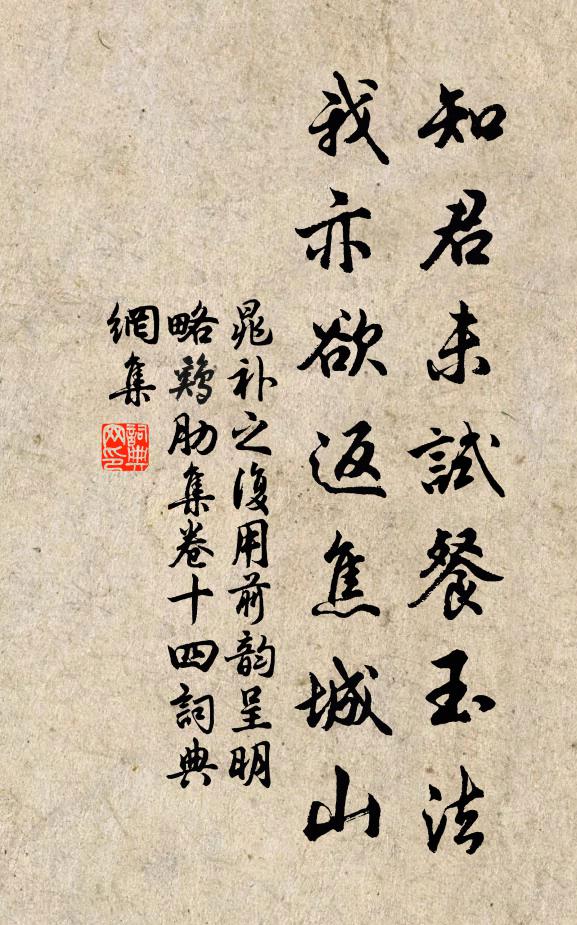 知君未試餐玉法
我亦欲返焦城山
晁补之復用前韵呈明
略鷄肋集卷十四詞典
網集
詞典
网印